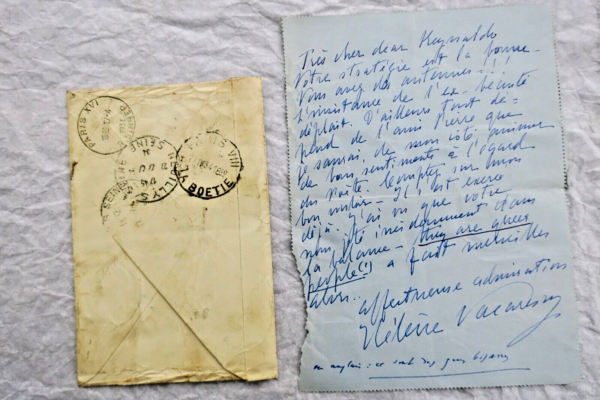 PARIS XVI
SEINE
NEUILLY S
PARIS VIII
BOETIE
Très cher dear Reynaldo
Votre stratégie est la bonne
Vous avez des antennes !!!
L'insistance de l'ex-beauté
déplait. D'ailleurs tout dé-
pend de l'ami Pierre que
je saurai, de mon côté, animer
de bons sentiments à l'égard
du poète. Comptez sur mon
bon vouloir. Il s'est exercé
déjà. J'ai vu que votre
nom jeté incidemment dans
la balance - they are queer
people (!) a fait merveilles
alors..
affectueuse admiration
Hélène Vacaresco
en anglais: ce sont des gens